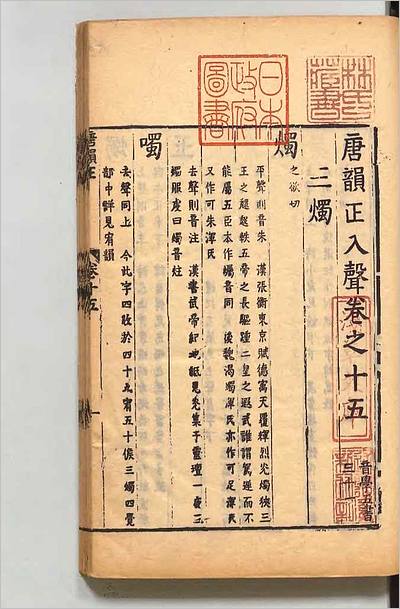 唐韻正入聲卷之十五
音學五書
三燭
燭
之欲切
平聲則音朱 漢張衡東京賦德㝢天覆輝烈光燭狹三
王之趢起軼五帝之長驅踵二皇之遐武誰謂駕遲而不
能屬五臣本作燭音同 後魏渴燭渾氏亦作可足渾氏
又作可朱渾氏
去聲則音注 漢書武帝紀
燭服虔曰燭音炷
噣
去聲同上 今此字四收於四十九宥五十候三燭四覺
部中詳見宥韻
唐韻正
卷十五
一
日本
政府
圖書
林氏
藏書